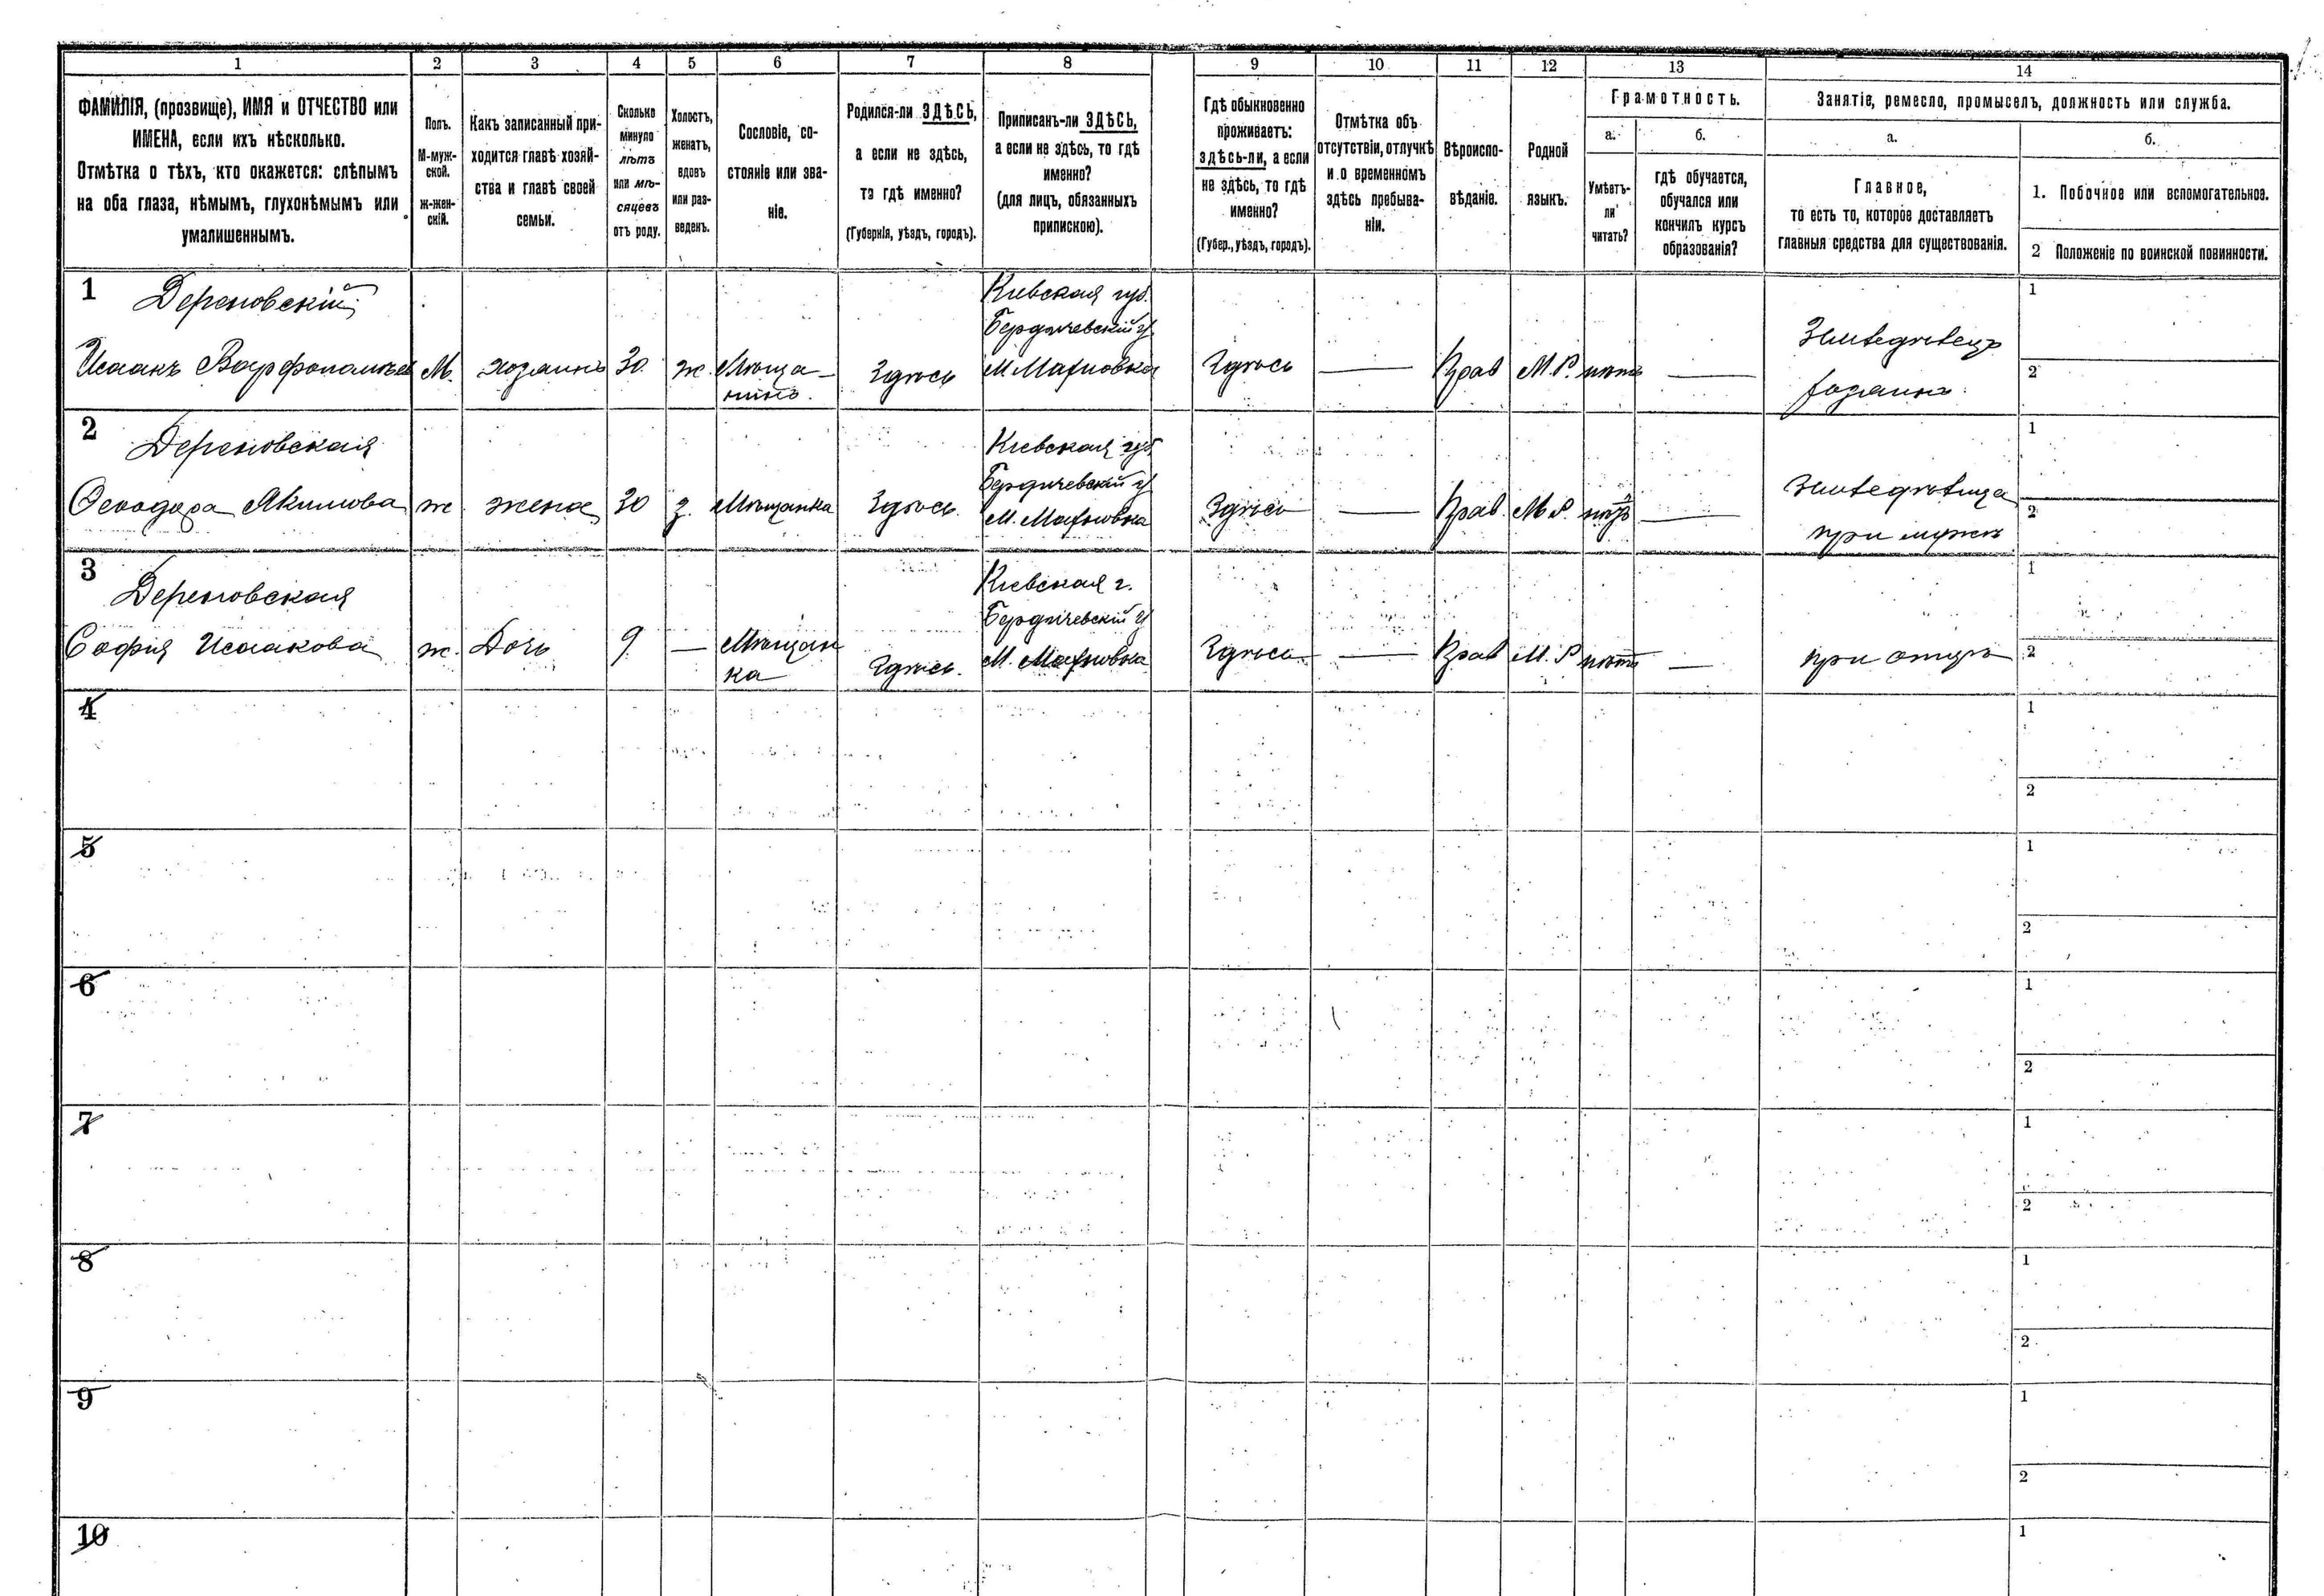 1 2 3 4 5 6 7 8 9 10 11 12 13 14
ФАМИЛІЯ, (прозвище), ИМЯ и ОТЧЕСТВО или
ИМЕНА, если ихъ нѣсколько.
Отмѣтка о тѣхъ, кто окажется: слѣпымъ
на оба глаза, нѣмымъ, глухонѣмымъ или
умалишеннымъ.
Полъ.
М-муж-
ской.
ж-жен-
скій.
Какъ записанный при-
ходится главѣ хозяй-
ства и главѣ своей
семьи.
Сколько
минуло
лѣтъ
или мѣ-
сяцевъ
отъ роду.
Холостъ,
женатъ,
вдовъ
или раз-
веденъ.
Сословіе, со-
стояніе или зва-
ніе.
Родился-ли ЗДѢСЬ,
а если не здѣсь,
то гдѣ именно?
(Губернія, уѣздъ, городъ).
Приписанъ-ли ЗДѢСЬ,
а если не здѣсь, то гдѣ
именно?
(для лицъ, обязанныхъ
припискою).
Гдѣ обыкновенно
проживаетъ:
здѣсь-ли, а если
не здѣсь, то гдѣ
именно?
(Губер., уѣздъ, городъ).
Отмѣтка объ
отсутствіи, отлучкѣ
и о временномъ
здѣсь пребыва-
ніи.
Вѣроиспо-
вѣданіе.
Родной
языкъ.
Грамотность.
а.
Умѣетъ-
ли
читать?
б.
гдѣ обучается,
обучался или
кончилъ курсъ
образованія?
Занятіе, ремесло, промыселъ, должность или служба.
а.
Главное,
то есть то, которое доставляетъ
главныя средства для существованія.
б.
1. Побочное или вспомогательное.
2 Положеніе по воинской повинности.
1
Дереновскій
Исаакъ Варфоломѣев
М.
хозяинъ
30
ж.
Мѣща-
нинъ.
Здѣсь
Кіевская губ.
Бердичевскій у
М Махновка
Здѣсь
—
Прав
М.Р.
нѣтъ
—
Земледѣлецъ
хозяинъ.
1
2
2
Дереновская
Феодора Якимова
ж
жена
30
з.
Мѣщанка
Здѣсь.
Кіевская губ
Бердичевскій у
М. Махновка
Здѣсь
—
Прав.
М Р.
нѣтъ
—
Земледѣлица
при мужѣ
1
2
3
Дереновская
София Исаакова
ж.
Дочь
9
—
Мѣщан
ка
Здѣсь.
Кіевская г.
Бердичевскій у
М. Махновка
Здѣсь
—
Прав
М. Р
нѣтъ
—
при отцѣ
1
2
4
1
2
5
1
2
6
1
2
7
1
2
8
1
2
9
1
2
10
1